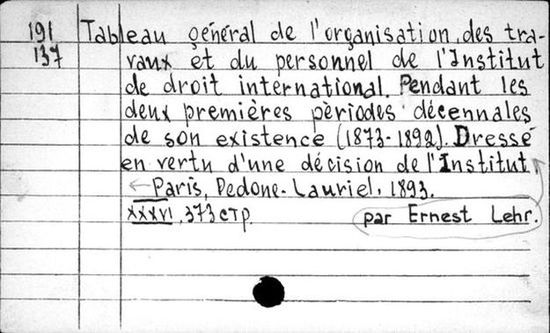 191 Tableau général de l'organisation, des tra-
137 vaux et du personnel de l'Institut
de droit international. Pendant les
deux premières pèriodes décennales
de son existence (1873-1892). Dressé
en vertu d'une décision de l'Institut,
Paris, Pedone-Lauriel, 1893.
XXXVI, 373 стр.
par Ernest Lehr.